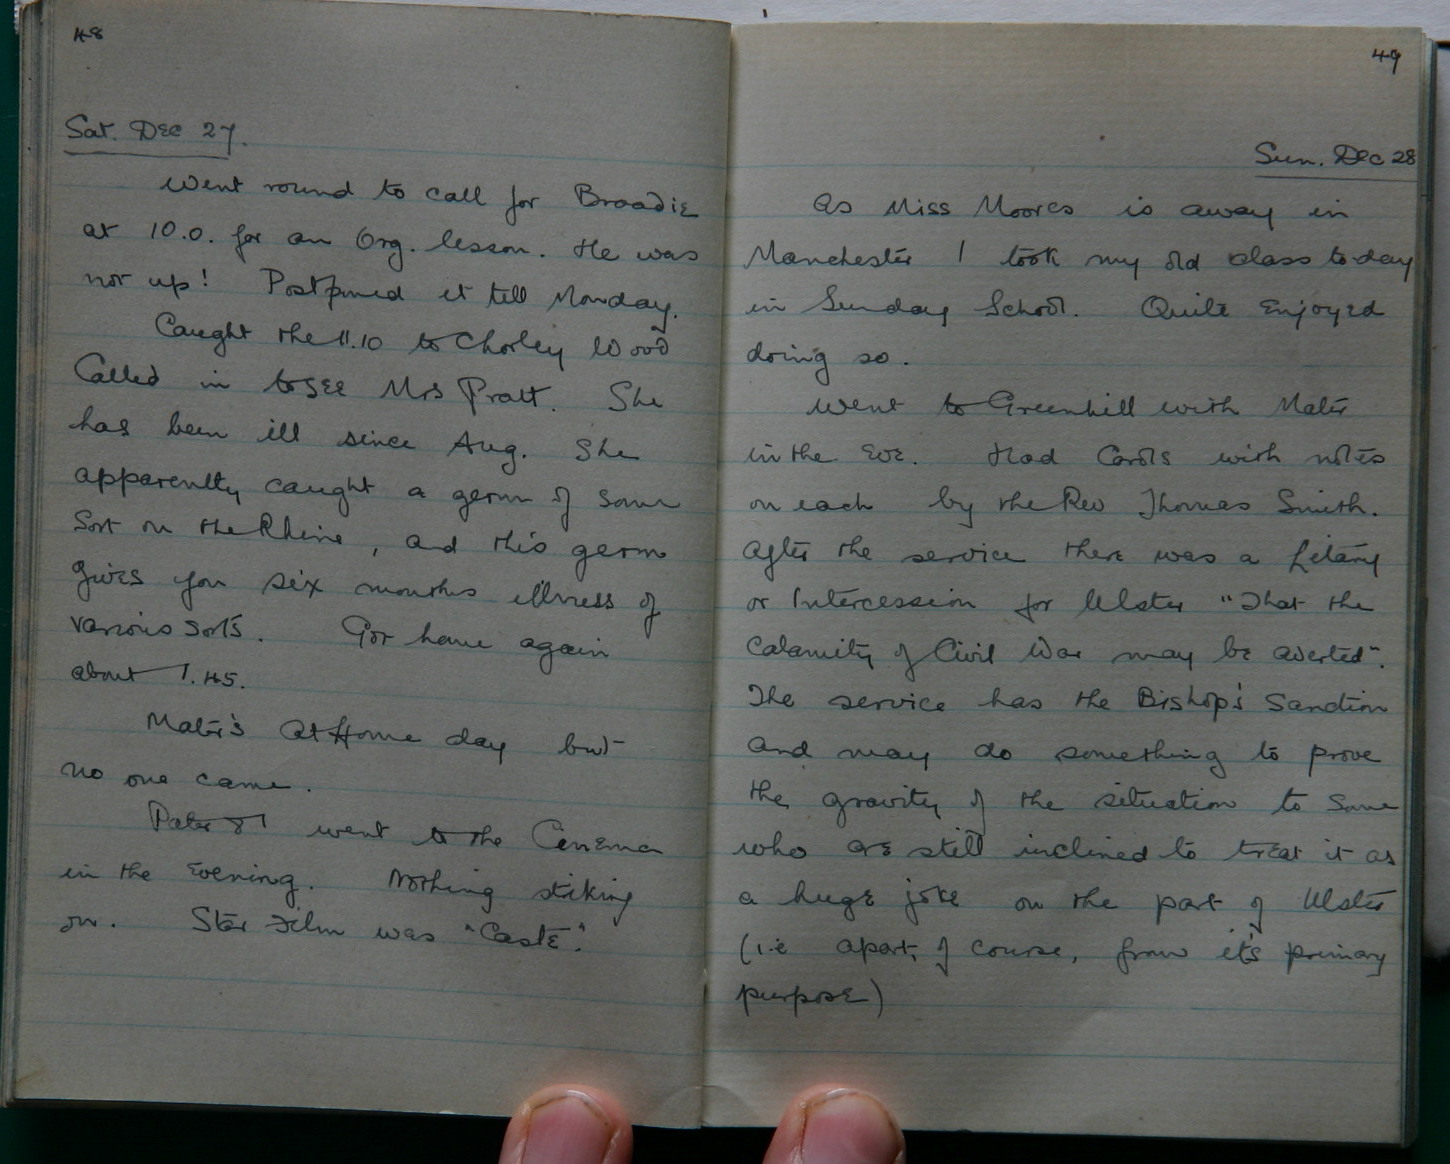 48
Sat. Dec 27.
Went round to call for Broadie
at 10.0. for an Org. lesson. He was
not up! Postponed it till Monday.
Caught the 11.10 to Chorley Wood
Called in to see Mrs Pratt. She
has been ill since Aug. She
apparently caught a germ of some
sort on the Rhine, and this germ
gives you six months illness of
various sorts. Got home again
about 1.45.
Mater's At Home day but
no one came.
Pater & I went to the Cinema
in the Evening. Nothing stiking
on. Star Film was "Caste".
49
Sun. Dec 28
As Miss Moores is away in
Manchester I took my old class to-day
in Sunday School. Quite Enjoyed
doing so.
Went to Greenhill with Mater
in the Eve. Had Carols with notes
on each by the Rev Thomas Smith.
After the service there was a Litany
or Intercession for Ulster "That the
Calamity of Civil War may be averted".
The service has the Bishop's Sanction
and may do something to prove
the gravity of the situation to some
who are still inclined to treat it as
a huge joke on the part of Ulster
(i.e apart, of course, from it's primary
purpose)